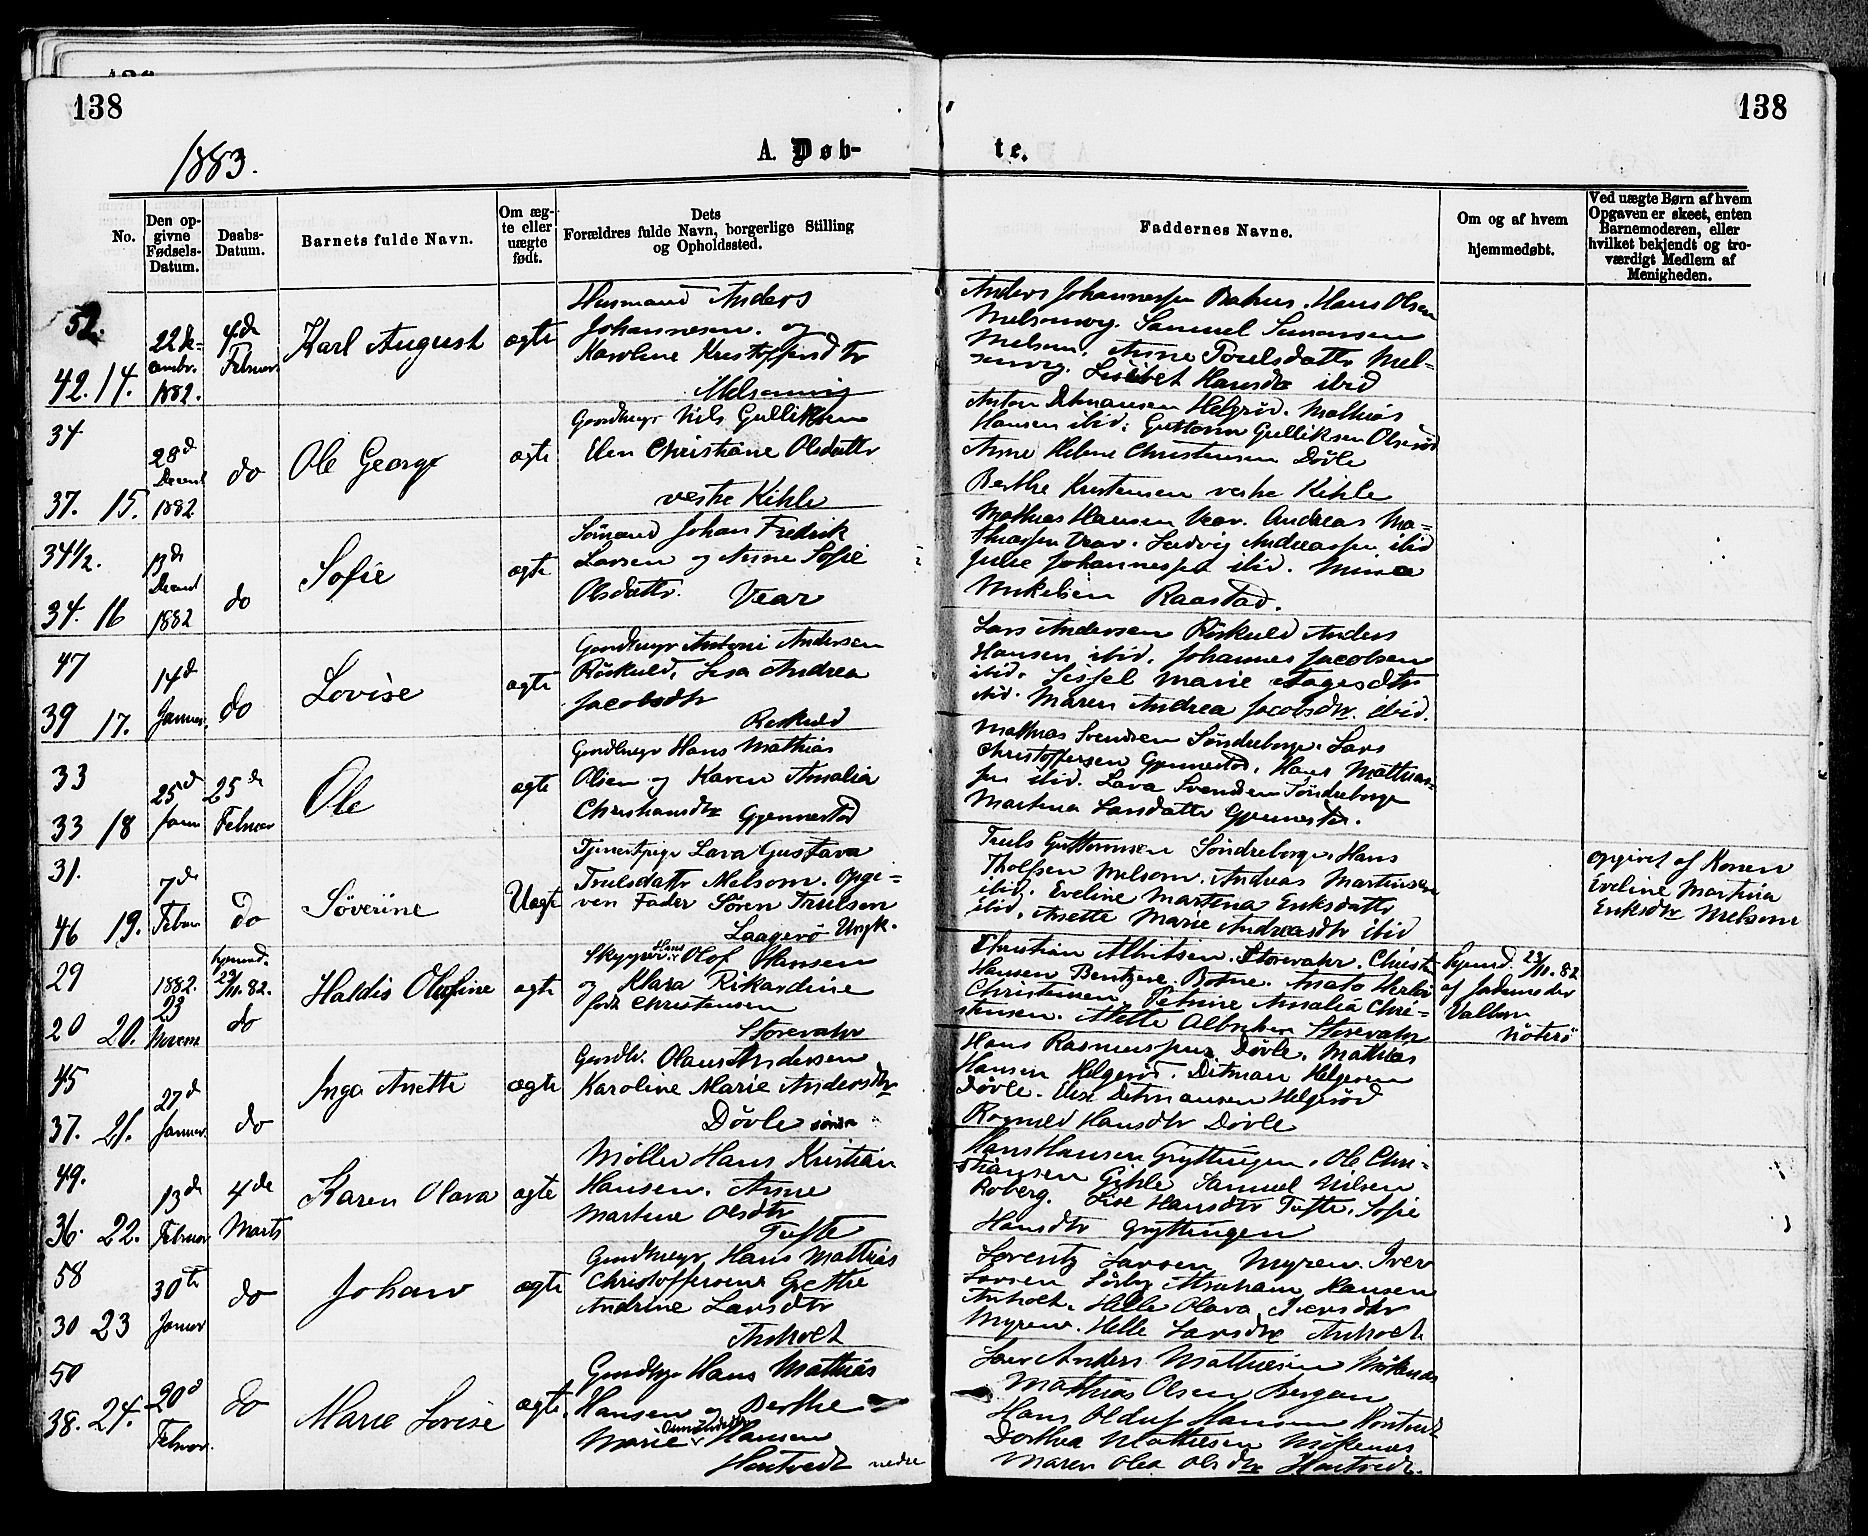 138
138
1883.
A. Døb-
te.
No.
Den op-
givne
Fødsels-
Datum.
Daabs-
Datum.
Barnets fulde Navn.
Om æg-
te eller
uægte
født.
Dets
Forældres fulde Navn, borgerlige Stilling
og Opholdssted.
Faddernes Navne.
Om og af hvem
hjemmedøbt.
Ved uægte Børn af hvem
Opgaven er skeet, enten
Barnemoderen, eller
hvilket bekjendt og tro-
værdigt Medlem af
Menigheden.
52.
42. 14.
22 de-
cembr.
1882.
4de
Februar
Karl August
ægte
Husmand Anders
Johannesen. og
Karoline Kristoffersdtr
Melsomvig
Anders Johannessen Bakus. Hans Olsen
Melsomvig. Samuel Simonsen
Melsom. Anne Poulsdattr Mel-
somvig. Lisebet Hansdtr ibid
34
37. 15.
28d
Decemb
1882
do
Ole George
ægte
Gaardbrugr Nils Gulliksen
Elen Christiane Olsdattr
vestre Kihle
Anton Ditmansen Helgrød. Mathias
Hansen ibid. Guttorm Gulliksen Olsrød
Anne Helene Christensen Døvle
Berthe Kristensen vestre Kihle
34 1/2.
34. 16
13de
Decemb
1882
do
Sofie
ægte
Sømand Johan Fredrik
Larsen og Anne Sofie
Olsdattr. Vear
Mathias Hansen Vear. Andreas Ma-
thiassen Vear. Ludvig Andreassen ibid
Julie Johannessen ibid. Mina
Mikelsen Raastad.
47
39 17.
14d
Januar.
do
Lovise
ægte
Gaardbrugr Antoni Andersen
Röskuld, Lisa Andrea
Jacobsdtr
Röskuld
Lars Andersen Röskuld Anders
Hansen ibid. Johannes Jacobsen
ibid. Sissel Marie Aagesdtr
ibid. Maren Andrea Jacobsdtr. ibid.
33
33 18
25d
Janu
25de
Februar
Ole
ægte
Gaardbrugr Hans Mathias
Olsen og Karen Amalia
Christiansdtr Gjennestad
Mathias Svendsen Söndreborge. Lars
Christoffersen Gjennestad. Hans Mathias-
sen ibid. Lava Svendsen Söndreborge
Martina Larsdattr Gjennestad.
31.
46 19.
7de
Febru
do
Søverine
Uægte
Tjenestpige Lava Gustava
Truelsdattr Melsom. Opgi-
ven Fader Sören Truelsen
Laagerö Ungk.
Truls Guttormsen Söndreborge. Hans
Tholfsen Melsom. Andreas Martinsen
ibid. Eveline Martina Eriksdattr
ibid. Anette Marie Andreasdtr ibid
opgivet af Konen
Eveline Martina
Eriksdtr Melsom
29
20 20.
1882.
23
Novem
hjemmd.
23/11. 82.
do
Haldis Olufine
ægte
Skipper Hans Olof Hansen
og Klara Rikardine
født Christensen
Storevahr
Christian Albritsen. Storevahr. Christ
Hansen Bentzere Botne.
Christensen. Petrine Amalia Chri-
stensen. Mette Storevahr
hjemd. 23/11. 82
af Jordmoder
Nöterö
45
37. 21.
27d
Januar.
do
Inga Anette
ægte
Gaardb. Olaus Andersen
Karoline Marie Andersdtr
Døvle söndre
Hans Rasmussen Døvle. Mathias
Hansen Helgerød. Ditman Helgesen
Døvle. Else Ditmansen Helgerød
Rognild Hansdtr Døvle
49.
36. 22.
13de
Februar
4de
Marts
Karen Olava
ægte
Møller Hans Kristian
Hansen. Anne
Martine Olsdtr
Tufte
Hans Hansen Gryttingen. Ole Chri-
stiansen Gihle Samuel Nilsen
Roberg. Lise Hansdtr Tufte. Sofie
Hansdtr Gryttingen
58
30 23
30te
Januar
do
Johan
ægte
Gaardbrugr Hans Mathias
Christoffersen Grethe
Andrine Larsdtr
Anholt
Lorentz Larsen Myren. Iver
Larsen Sörby Abraham Hansen
Anholt. Helle Olava Iversdtr
Myren. Helle Larsdtr Anholt
50
38. 24.
20d
Februar.
do
Marie Lovise
ægte.
Gaardbr Hans Mathias
Hansen og Berthe
Marie Hansen
Hontvedt nedre
Anders Mathiesen Mökenæs
Mathias Olsen Bergan
Hans Oluf Hansen Hontvedt
Dorthea Mathiesen Mökenæs
Maren Olea Olsdtr Hontvedt.